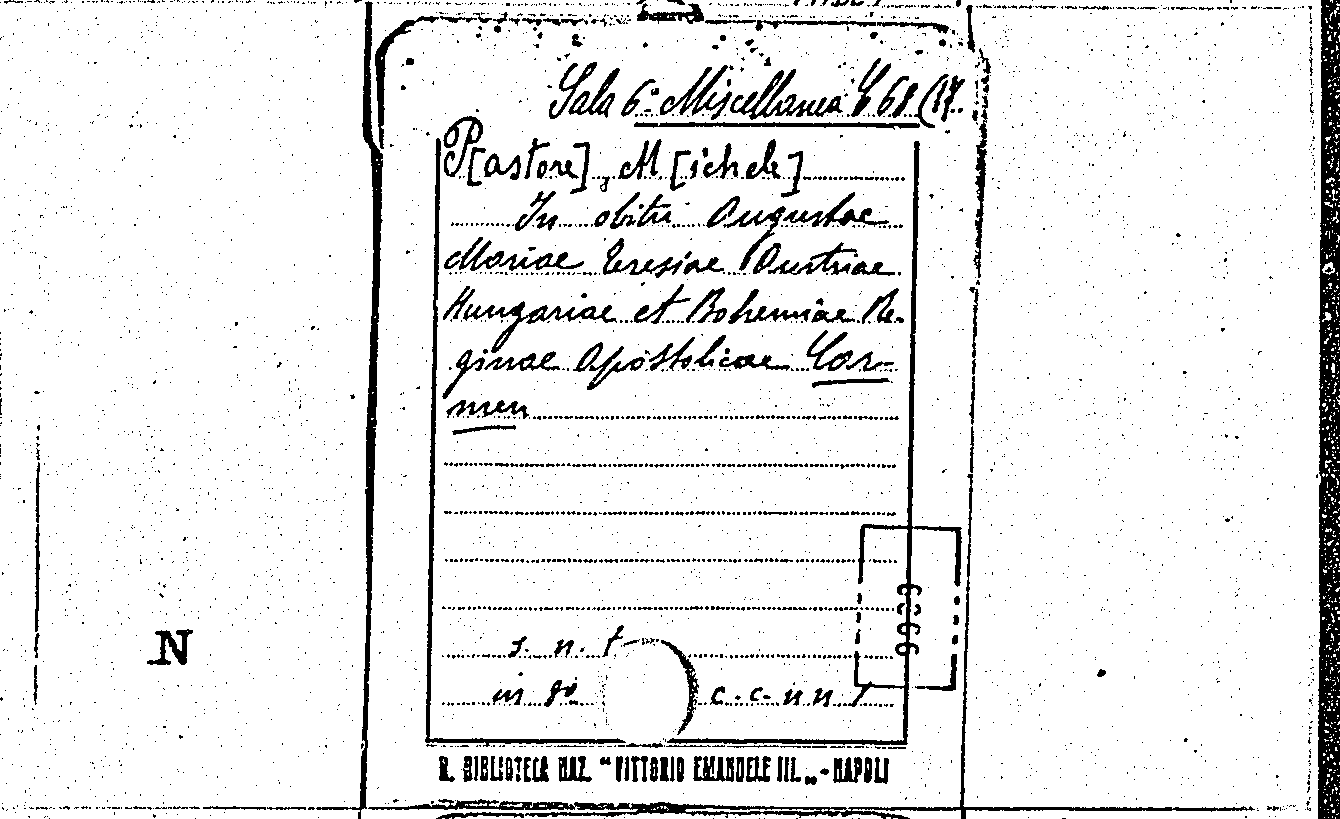 Sala 6ª Miscellanea C 68 (17.
P[astore], M[ichele]
In obitu Augustae
Mariae Teresiae Austriae
Hungariae et Bohemiae Re-
ginae Apostolicae Car-
men
9939
N
s. n. t
in 8º c.c. n n
R. BIBLIOTECA NAZ. "VITTORIO EMANUELE III." - NAPOLI